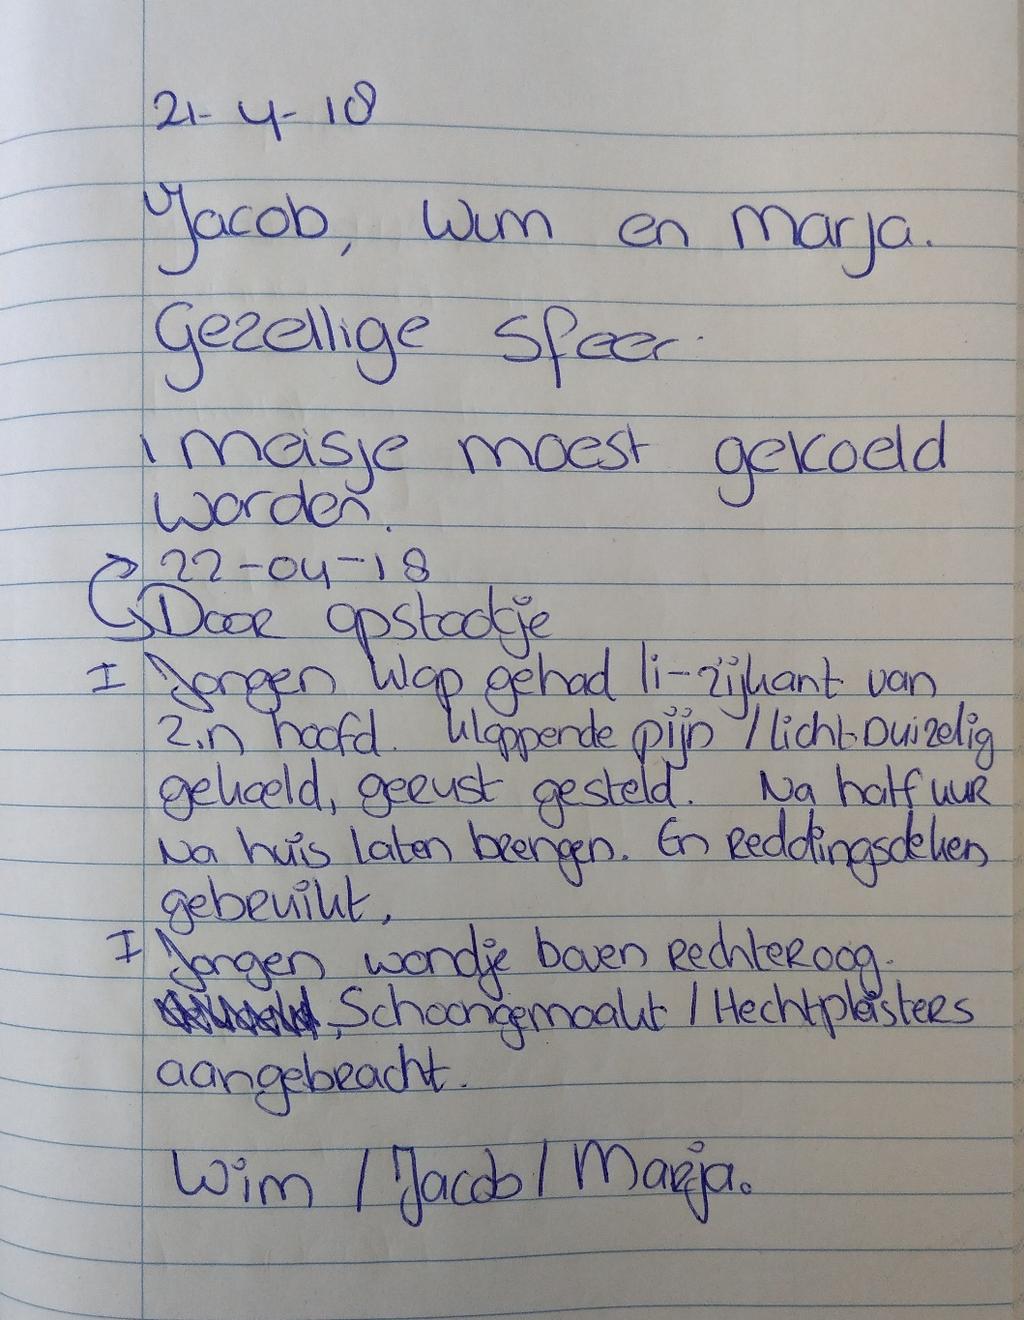 21-4-18
Jacob, Wim en Marja.
Gezellige sfeer.
1 meisje moest gekoeld
worden.
22-04-18
Door opstootje
I Jongen klap gehad li-zijkant van
z.n hoofd. kloppende pijn / licht-Duizelig
gekoeld, gerust gesteld. Na half uur
Na huis laten brengen. En Reddingsdeken
gebruikt,
I Jongen wondje boven Rechteroog.
, Schoongemaakt / Hechtpleisters
aangebracht.
Wim / Jacob / Marja.